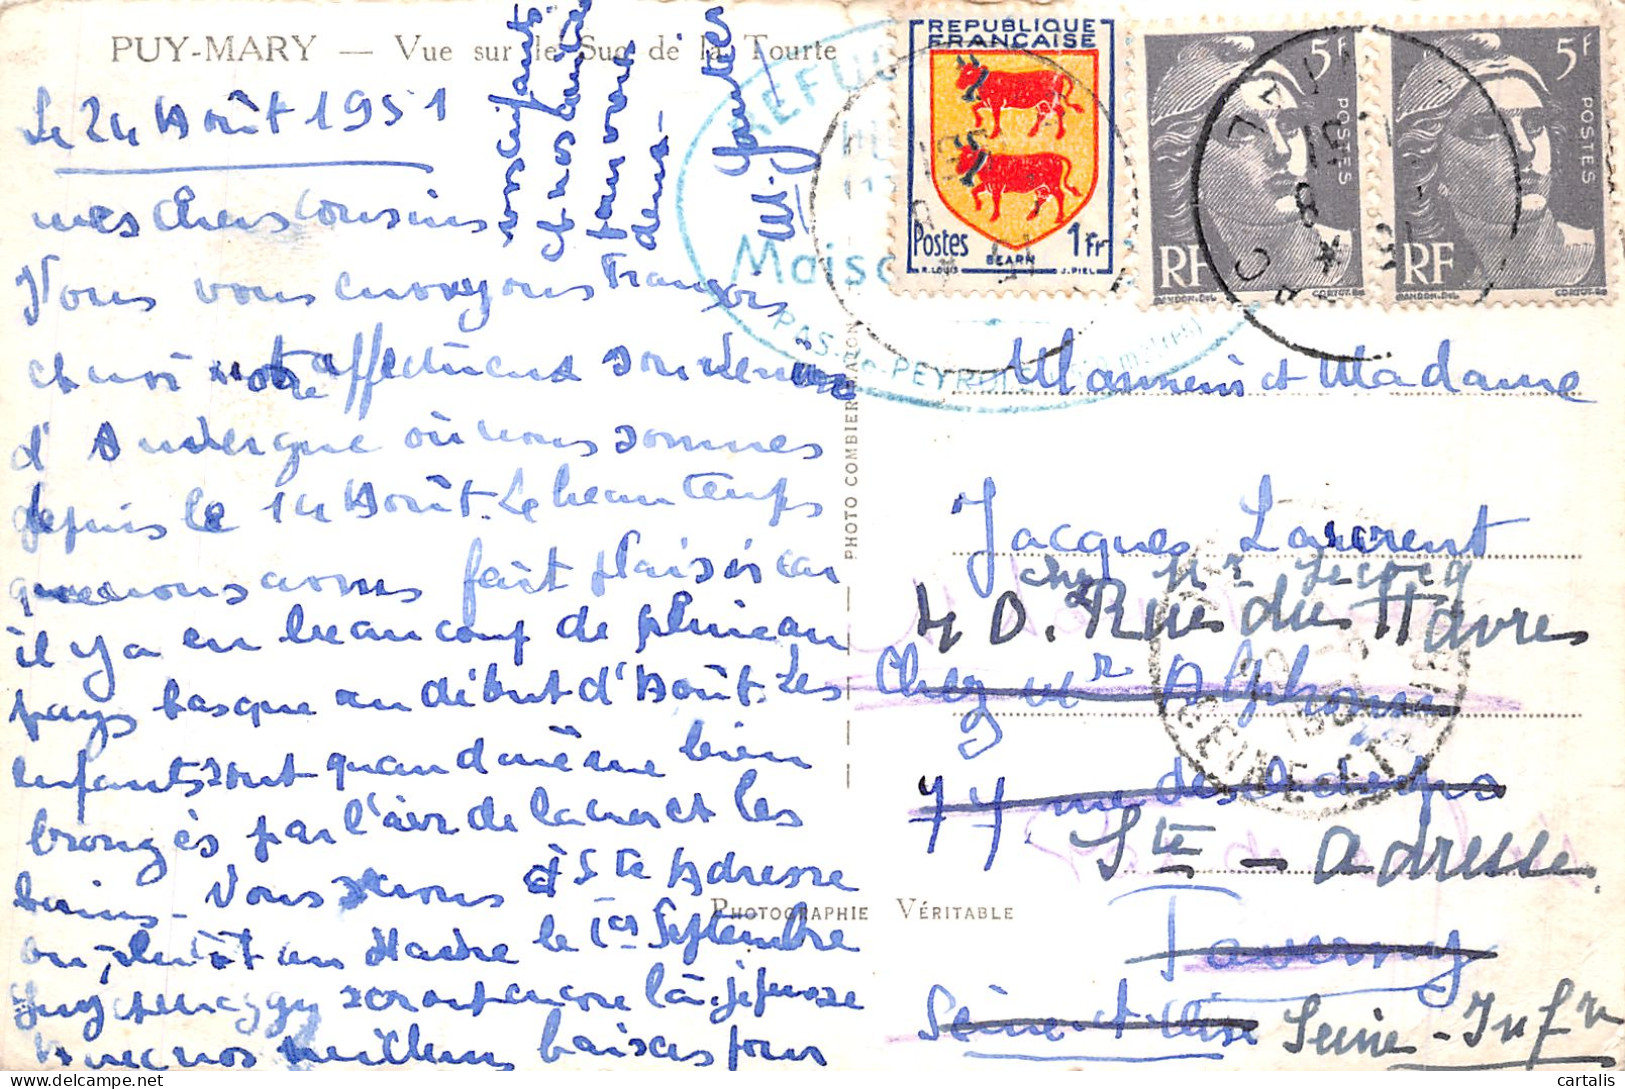 PUY-MARY — Vue sur le Suc de la Tourte
Le 24 Août 1951
mes chers cousins
Nous vous envoyons François
et moi notre affectueux souvenir
d'Auvergne où nous sommes
depuis le 14 Août. Le beau temps
que nous avons fait plaisir car
il y a eu beaucoup de pluie au
pays basque au début d'Août. Les
enfants sont quand même bien
bronzés par l'air de la mer et les
bains - Nous serons à Ste Adresse
ou plutôt au Havre le 1er Septembre
Guy et Maggy seront encore là je pense
Avec nos meilleurs baisers pour
vos enfants
et nos amitiés
pour vous
deux -
REFUGE
Maiso
PAS-de-PEYROL
REPUBLIQUE
FRANÇAISE
Postes 1Fr
R. LOUIS BEARN J. PIEL
5F
POSTES
RF
GANDON. DEL CORTOT. SC
5F
POSTES
RF
GANDON. DEL CORTOT. SC
PHOTO COMBIER MACON
PHOTOGRAPHIE VÉRITABLE
Monsieur et Madame
Jacques Laurent
chez Mr Lecocq
40. Rue du Havre
Chez Mr Alphonse
77 rue des
Ste - Adresse
Taverny
Seine et Oise Seine - Infre
SEINE-ET-
cartalis